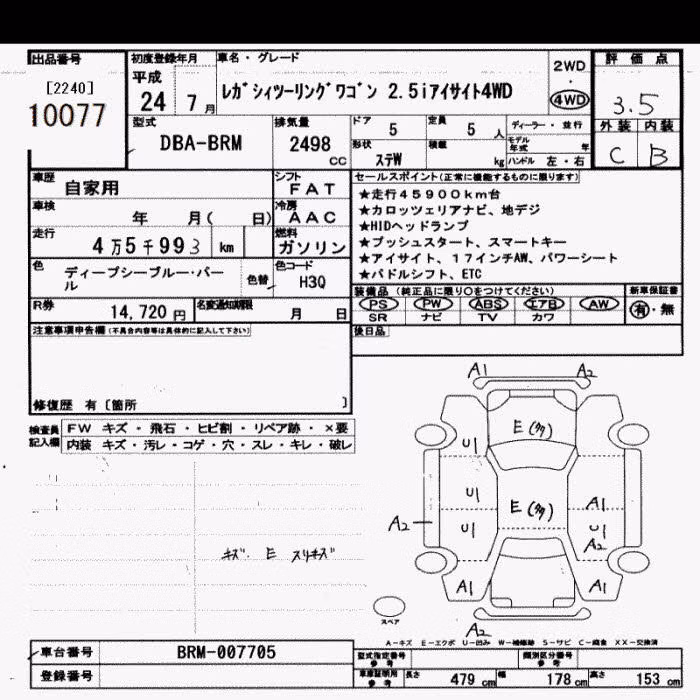 出品番号
[2240]
10077
初度登録年月
平成
24 7月
車名・グレード
ﾚｶﾞｼｨﾂｰﾘﾝｸﾞﾜｺﾞﾝ 2.5iｱｲｻｲﾄ4WD
2WD
・
4WD
評価点
3.5
外装 内装
C B
型式
DBA-BRM
排気量
2498
cc
ドア
5
定員
5 人
ディーラー・並行
形状
ｽﾃW
積載
kg
モデル年式 年
ハンドル 左・右
車歴
自家用
シフト
FAT
車検
年 月( 日)
冷房
AAC
走行
4万5千993 km
燃料
ガソリン
色
ディープシーブルー・パール
色替
色コード
H3Q
R券
14,720円
名変通知期限
月 日
セールスポイント(正常に機能するものに限ります)
★走行45900km台
★カロッツェリアナビ、地デジ
★HIDヘッドランプ
★プッシュスタート、スマートキー
★アイサイト、17インチAW、パワーシート
★パドルシフト、ETC
装備品(純正品に限り○をつけてください)
新車保証書
PS PW ABS エアB AW
SR ナビ TV カワ
有・無
後日品
注意事項申告欄(不具合内容等は具体的に記入して下さい)
修復歴 有〔箇所 〕
検査員記入欄
FW キズ・飛石・ヒビ割・リペア跡・×要
内装 キズ・汚レ・コゲ・穴・スレ・キレ・破レ
キズ・E スリキズ
A1 A2
E(多)
U1
U1 E(多) A1
A2 U1 U1
A2
A1 A1
スペア
A2
A-キズ E-エクボ U-凹み W-補修跡 S-サビ C-腐食 XX-交換済
車台番号
BRM-007705
登録番号
型式指定番号 参考
類別区分番号 参考
車庫証明用 参考
長さ 479 cm 幅 178 cm 高さ 153 cm